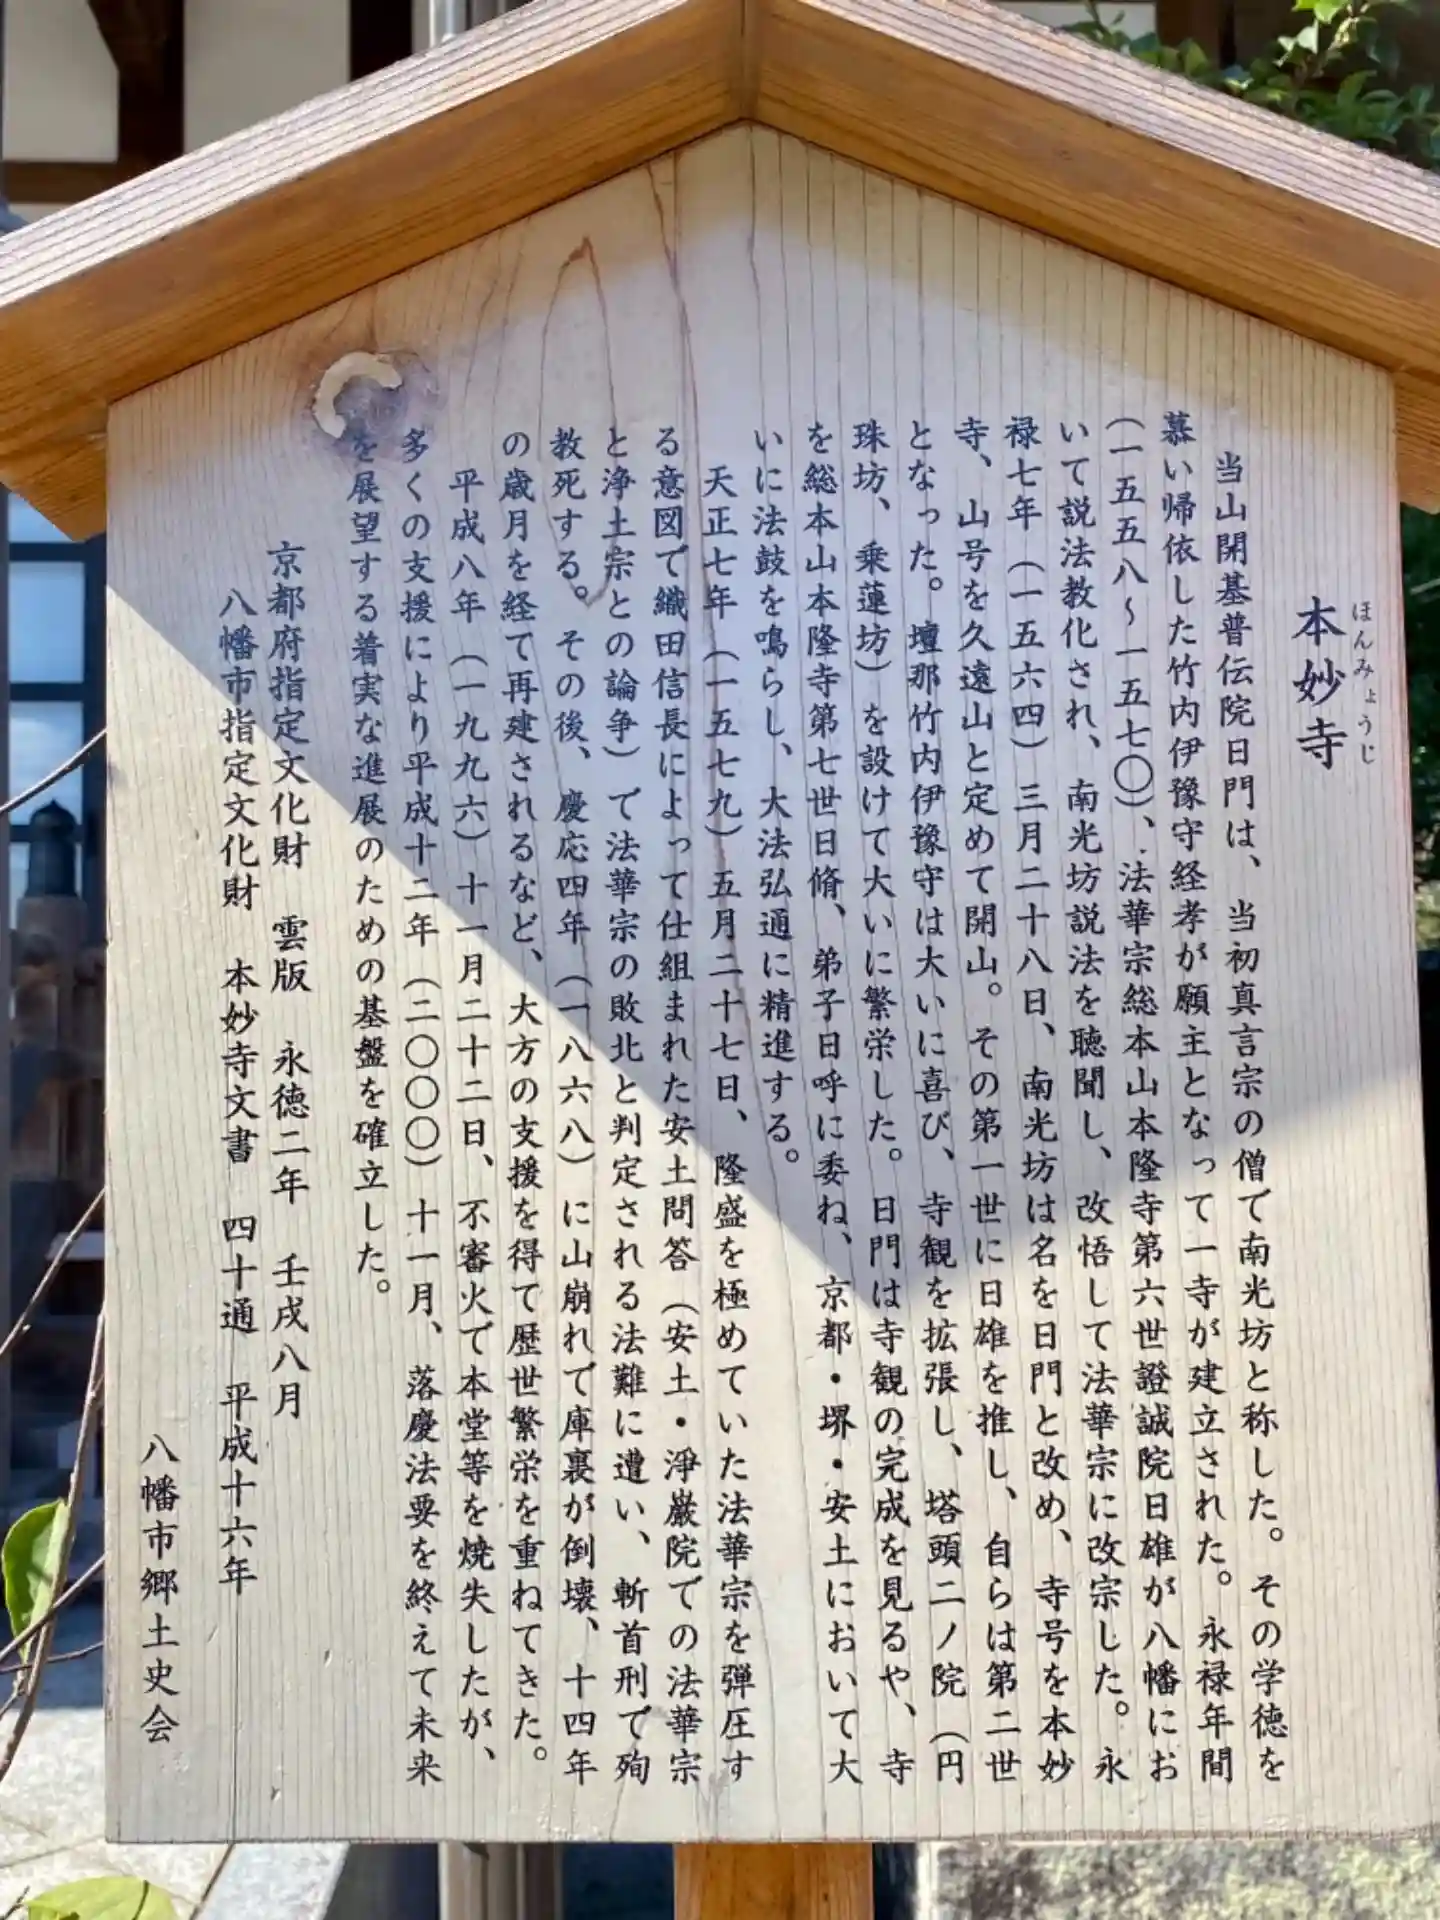 本妙寺
ほんみょうじ
当山開基普伝院日門は、当初真言宗の僧で南光坊と称した。その学徳を
慕い帰依した竹内伊豫守経孝が願主となって一寺が建立された。永禄年間
（一五五八～一五七〇）、法華宗総本山本隆寺第六世證誠院日雄が八幡にお
いて説法教化され、南光坊説法を聴聞し、改悟して法華宗に改宗した。永
禄七年（一五六四）三月二十八日、南光坊は名を日門と改め、寺号を本妙
寺、山号を久遠山と定めて開山。その第一世に日雄を推し、自らは第二世
となった。壇那竹内伊豫守は大いに喜び、寺観を拡張し、塔頭二ノ院（円
珠坊、乗蓮坊）を設けて大いに繁栄した。日門は寺観の完成を見るや、寺
を総本山本隆寺第七世日脩、弟子日呼に委ね、京都・堺・安土において大
いに法鼓を鳴らし、大法弘通に精進する。
天正七年（一五七九）五月二十七日、隆盛を極めていた法華宗を弾圧す
る意図で織田信長によって仕組まれた安土問答（安土・淨厳院での法華宗
と浄土宗との論争）で法華宗の敗北と判定される法難に遭い、斬首刑で殉
教死する。その後、慶応四年（一八六八）に山崩れで庫裏が倒壊、十四年
の歳月を経て再建されるなど、大方の支援を得て歴世繁栄を重ねてきた。
平成八年（一九九六）十一月二十二日、不審火で本堂等を焼失したが、
多くの支援により平成十二年（二〇〇〇）十一月、落慶法要を終えて未来
を展望する着実な進展のための基盤を確立した。
京都府指定文化財　雲版　永徳二年　壬戌八月
八幡市指定文化財　本妙寺文書　四十通　平成十六年
八幡市郷土史会